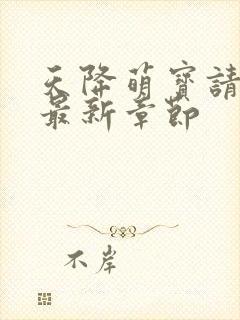 天降萌寶請
最新章節
不岸